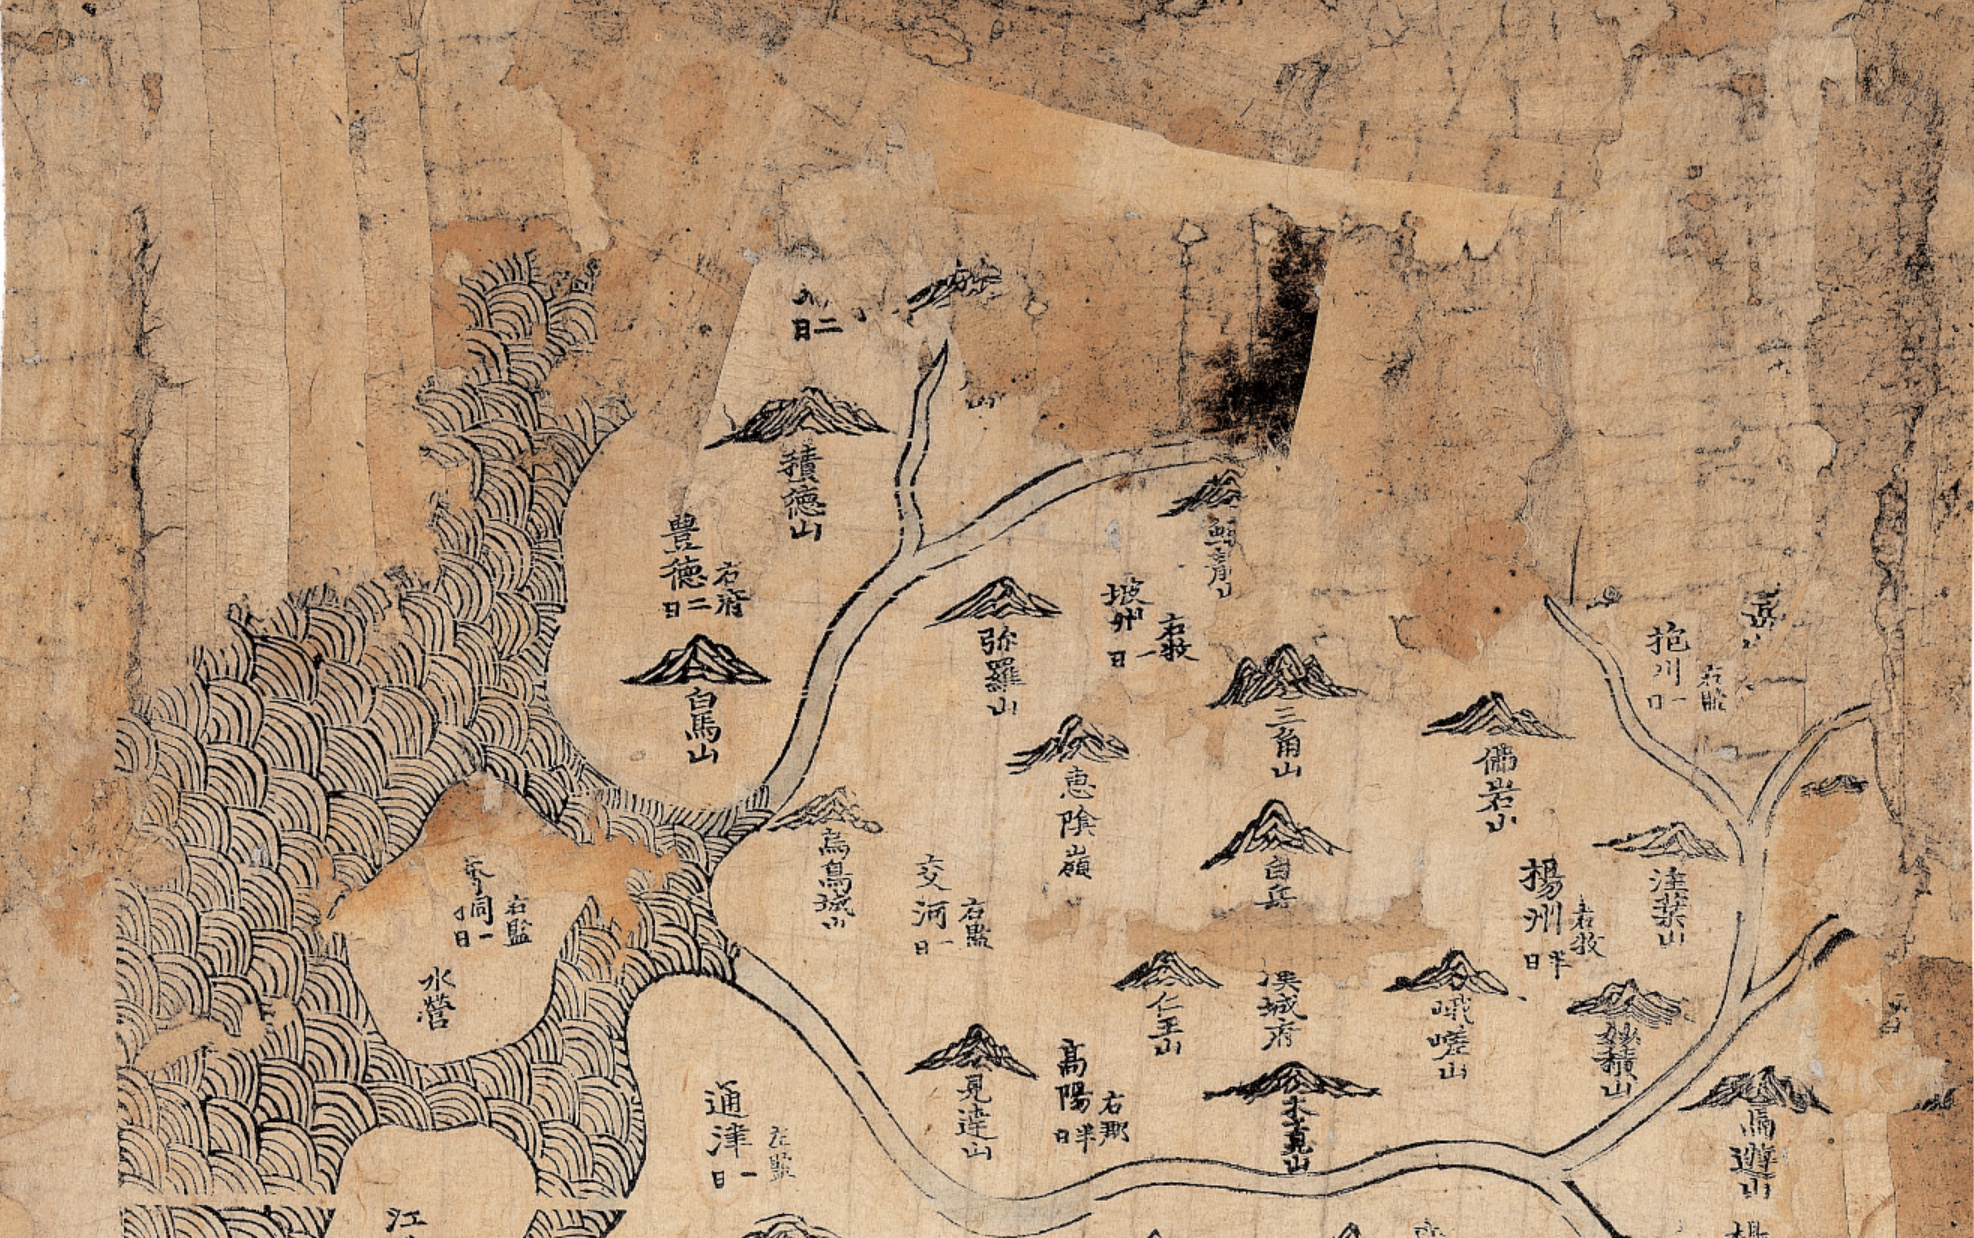 二日
積德山
豊德
右府
二日
白馬山
弥羅山
坡州
右牧
一日
三角山
抱川
右監
一日
岳山
佛岩山
惠隂嶺
烏鳥城山
交河
右監
一日
白岳
楊州
右牧
半日
洼葉山
喬洞
右監
一日
水營
仁王山
漢城府
峨嵯山
妙積山
見達山
高陽
右郡
半日
木覓山
通津
右監
一日
遊山
江
楊